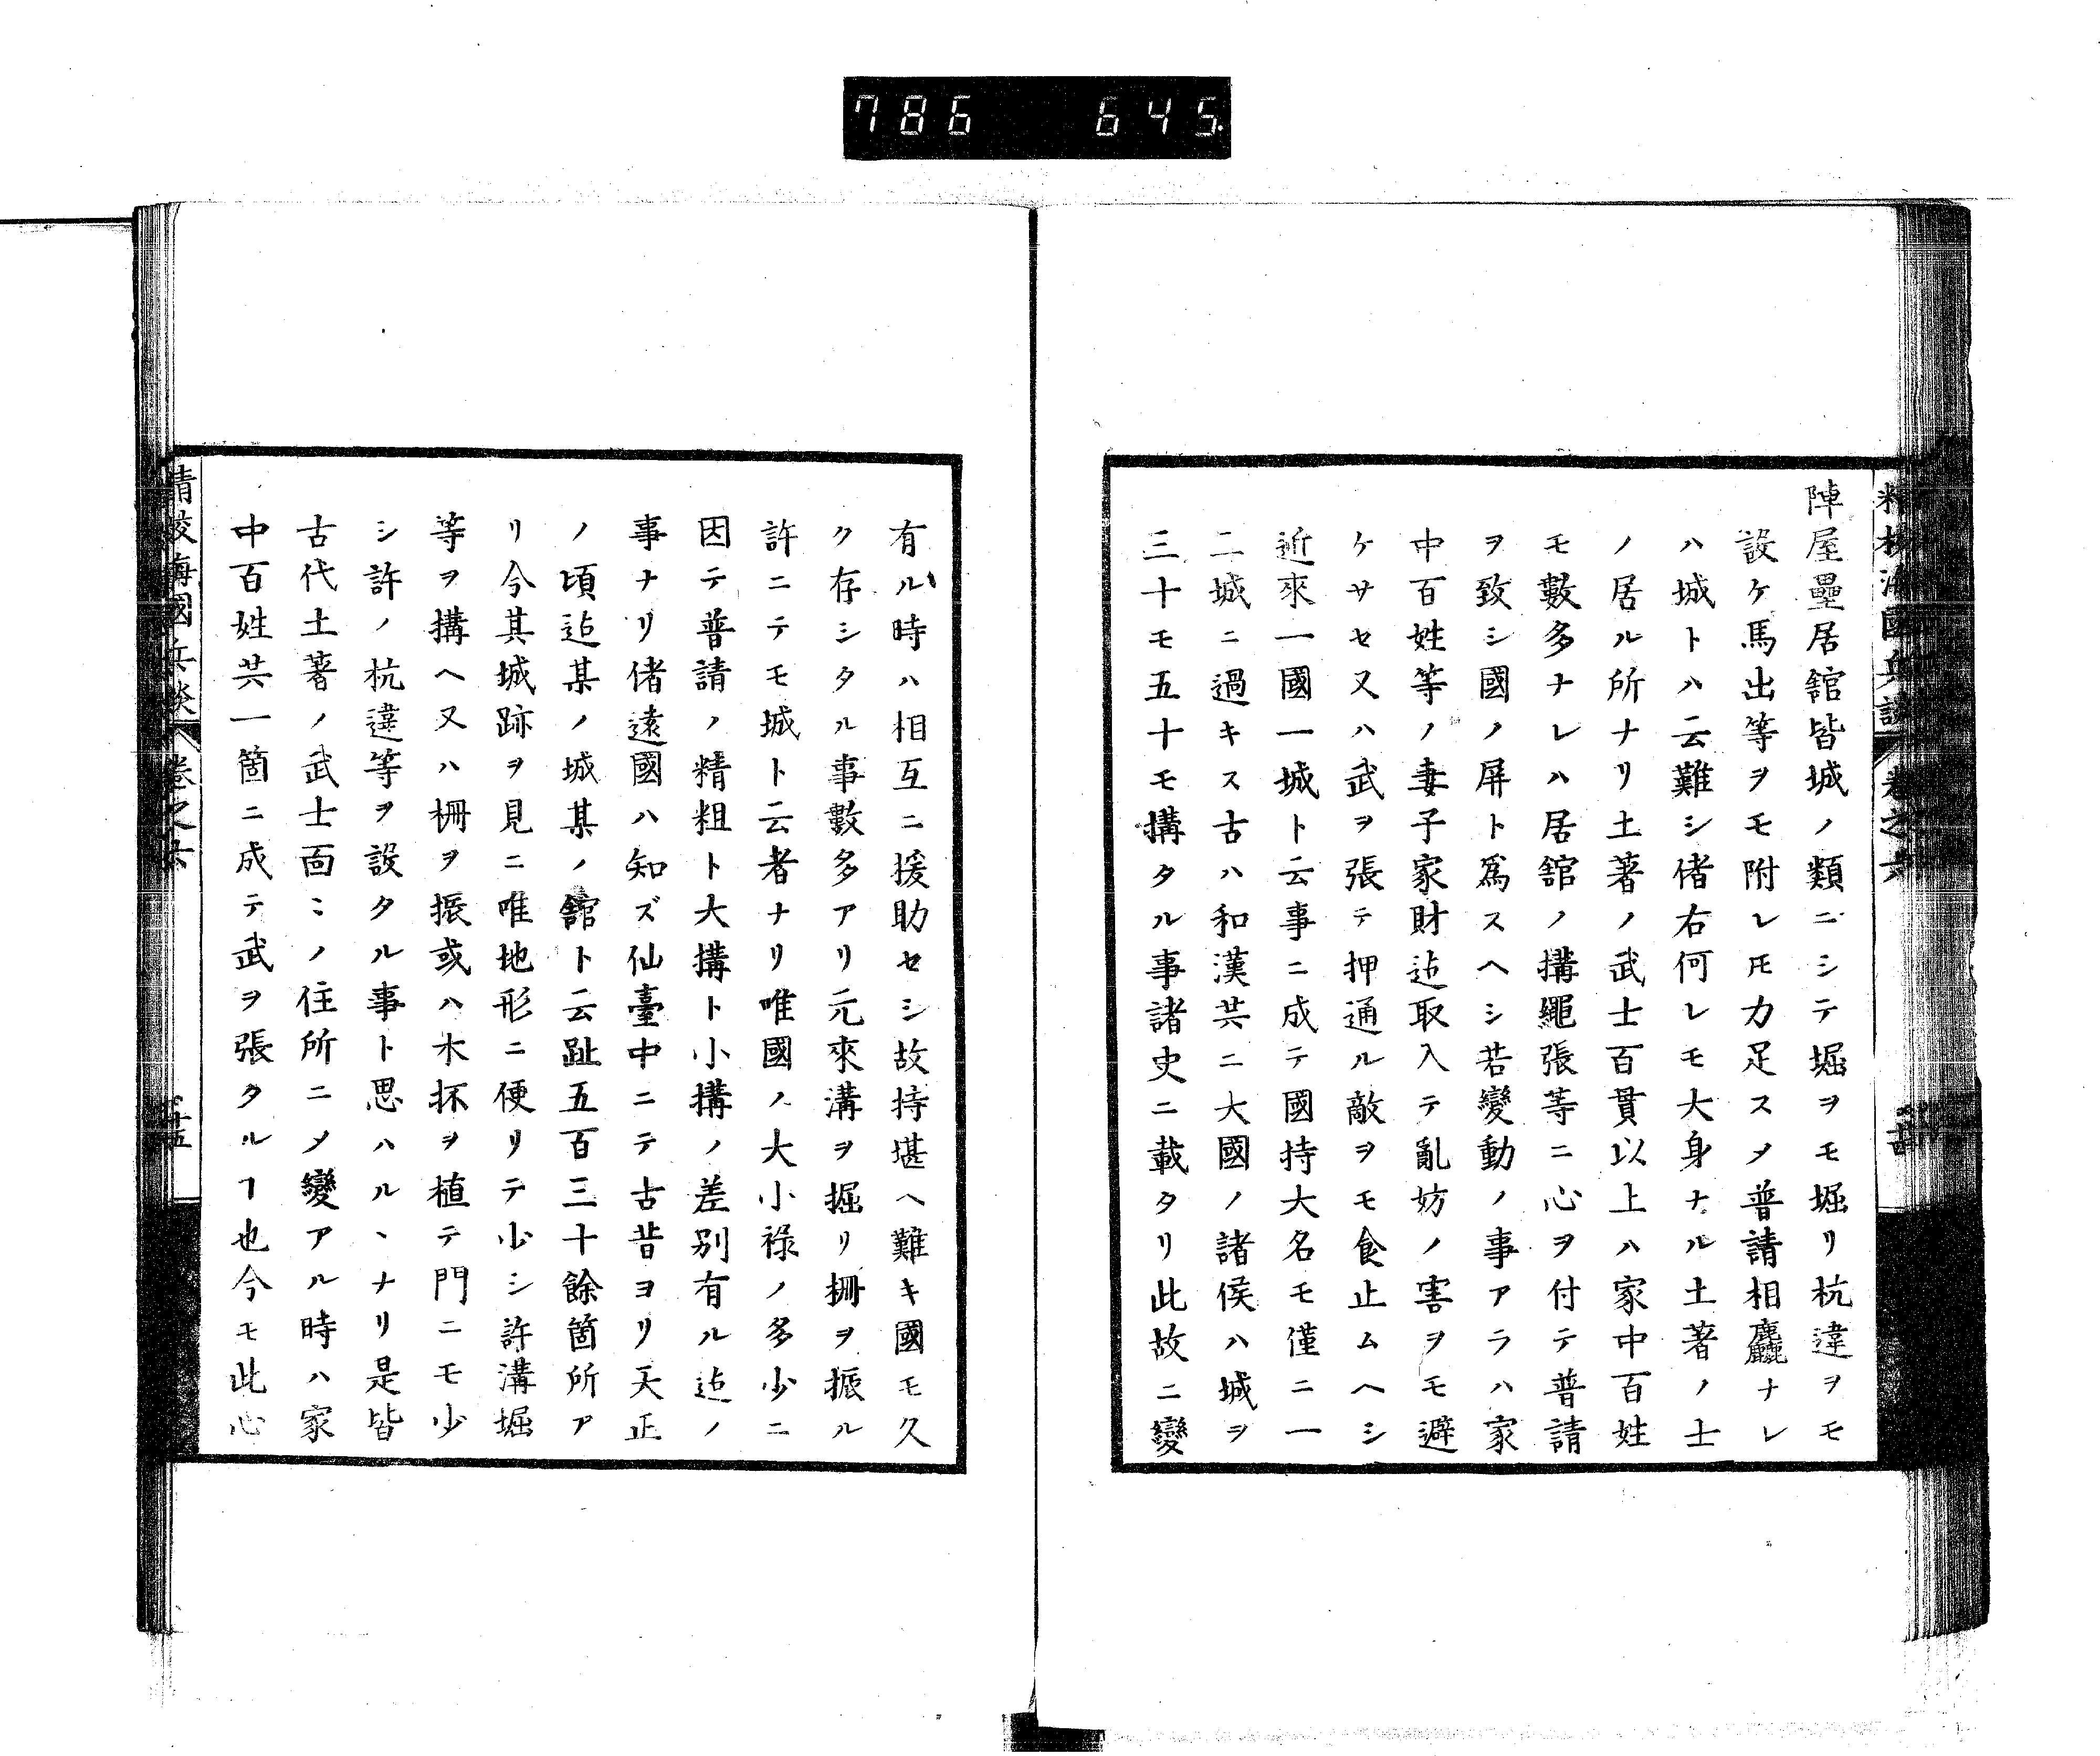 786 645
陣屋壘居舘皆城ノ類ニシテ堀ヲモ堀リ杭違ヲモ
設ケ馬出等ヲモ附レ𪜈力足スメ普請相麤ナレ
ハ城トハ云難シ偖右何レモ大身ナル土著ノ士
ノ居ル所ナリ土著ノ武士百貫以上ハ家中百姓
モ數多ナレハ居舘ノ搆繩張等ニ心ヲ付テ普請
ヲ致シ國ノ屏ト爲スヘシ若變動ノ事アラハ家
中百姓等ノ妻子家財迠取入テ亂妨ノ害ヲモ避
ケサセ又ハ武ヲ張テ押通ル敵ヲモ食止ムヘシ
近來一國一城ト云事ニ成テ國持大名モ僅ニ一
二城ニ過キス古ハ和漢共ニ大國ノ諸侯ハ城ヲ
三十モ五十モ搆タル事諸史ニ載タリ此故ニ變
有ル時ハ相互ニ援助セシ故持堪ヘ難キ國モ久
ク存シタル事數多アリ元來溝ヲ掘リ柵ヲ振ル
許ニテモ城ト云者ナリ唯國ノ大小祿ノ多少ニ
因テ普請ノ精粗ト大搆ト小搆ノ差別有ル迠ノ
事ナリ偖遠國ハ知ズ仙臺中ニテ古昔ヨリ天正
ノ頃迠某ノ城某ノ舘ト云趾五百三十餘箇所ア
リ今其城跡ヲ見ニ唯地形ニ便リテ少シ許溝堀
等ヲ搆ヘ又ハ柵ヲ振或ハ木抔ヲ植テ門ニモ少
シ許ノ杭違等ヲ設タル事ト思ハルヽナリ是皆
古代土著ノ武士面〻ノ住所ニメ變アル時ハ家
中百姓共一箇ニ成テ武ヲ張タルヿ也今モ此心
精校海國兵談 卷之六